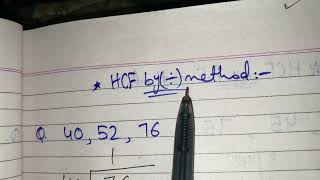 * HCF by(÷) method:-
Q. 40, 52, 76
1